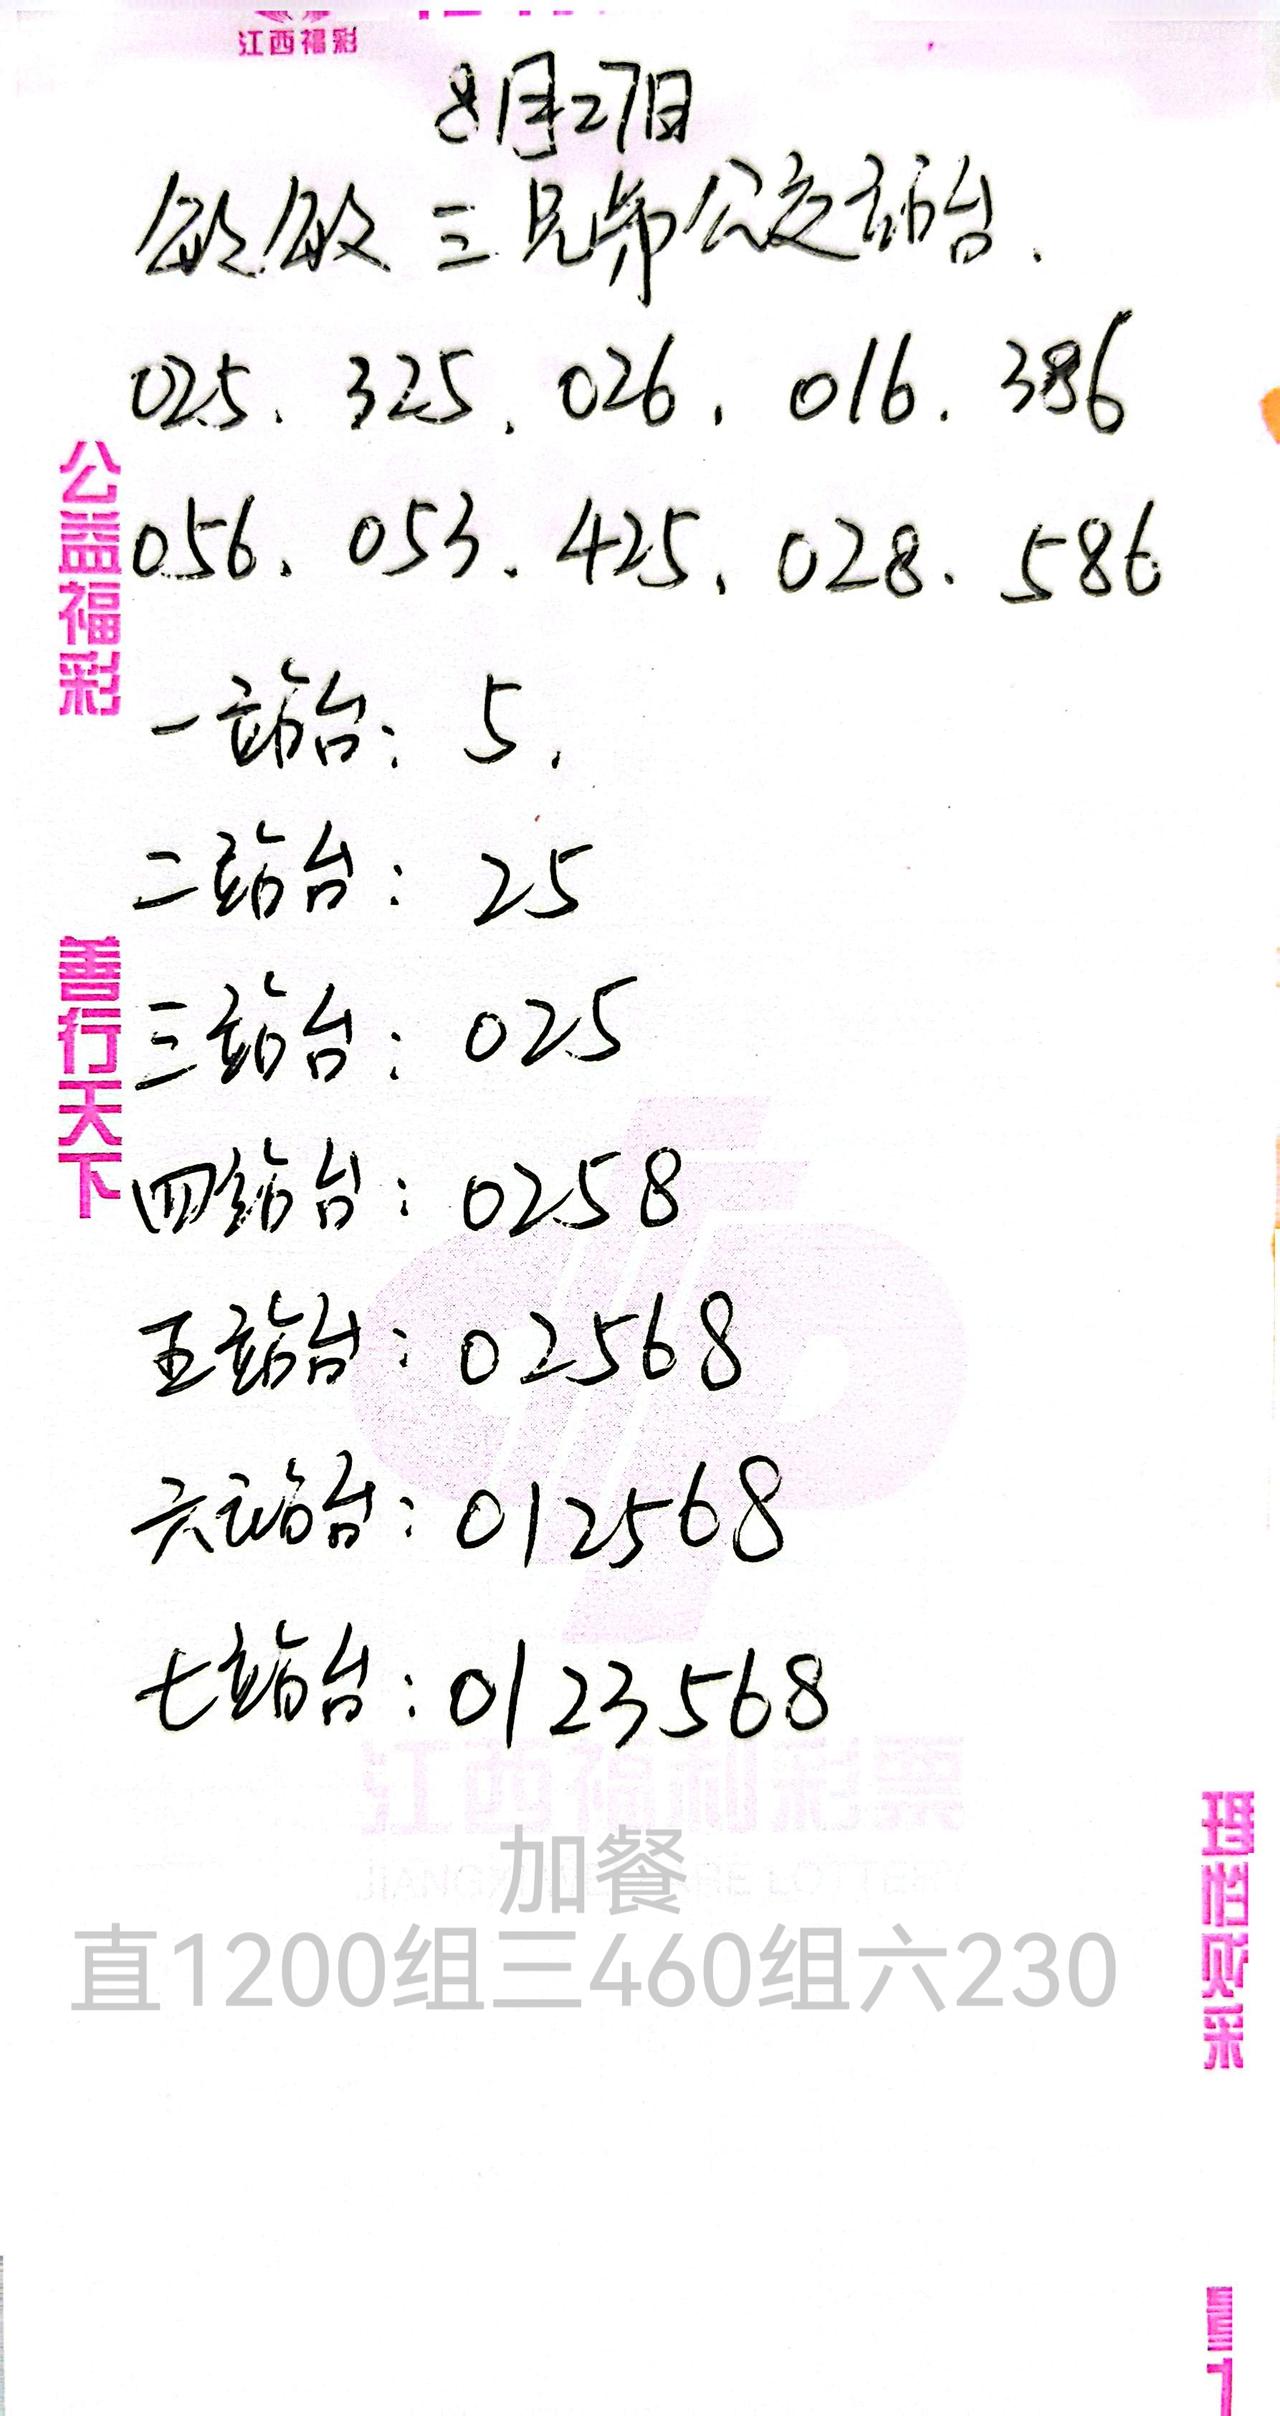 江西福彩
8月27日
敏敏三兄弟公交站台.
025. 325. 026. 016. 386
056. 053. 425. 028. 586
公益福彩
一站台: 5.
二站台: 25
善行天下
三站台: 025
四站台: 0258
五站台: 02568
六站台: 012568
七站台: 0123568
江西福利彩票
加餐
直1200组三460组六230